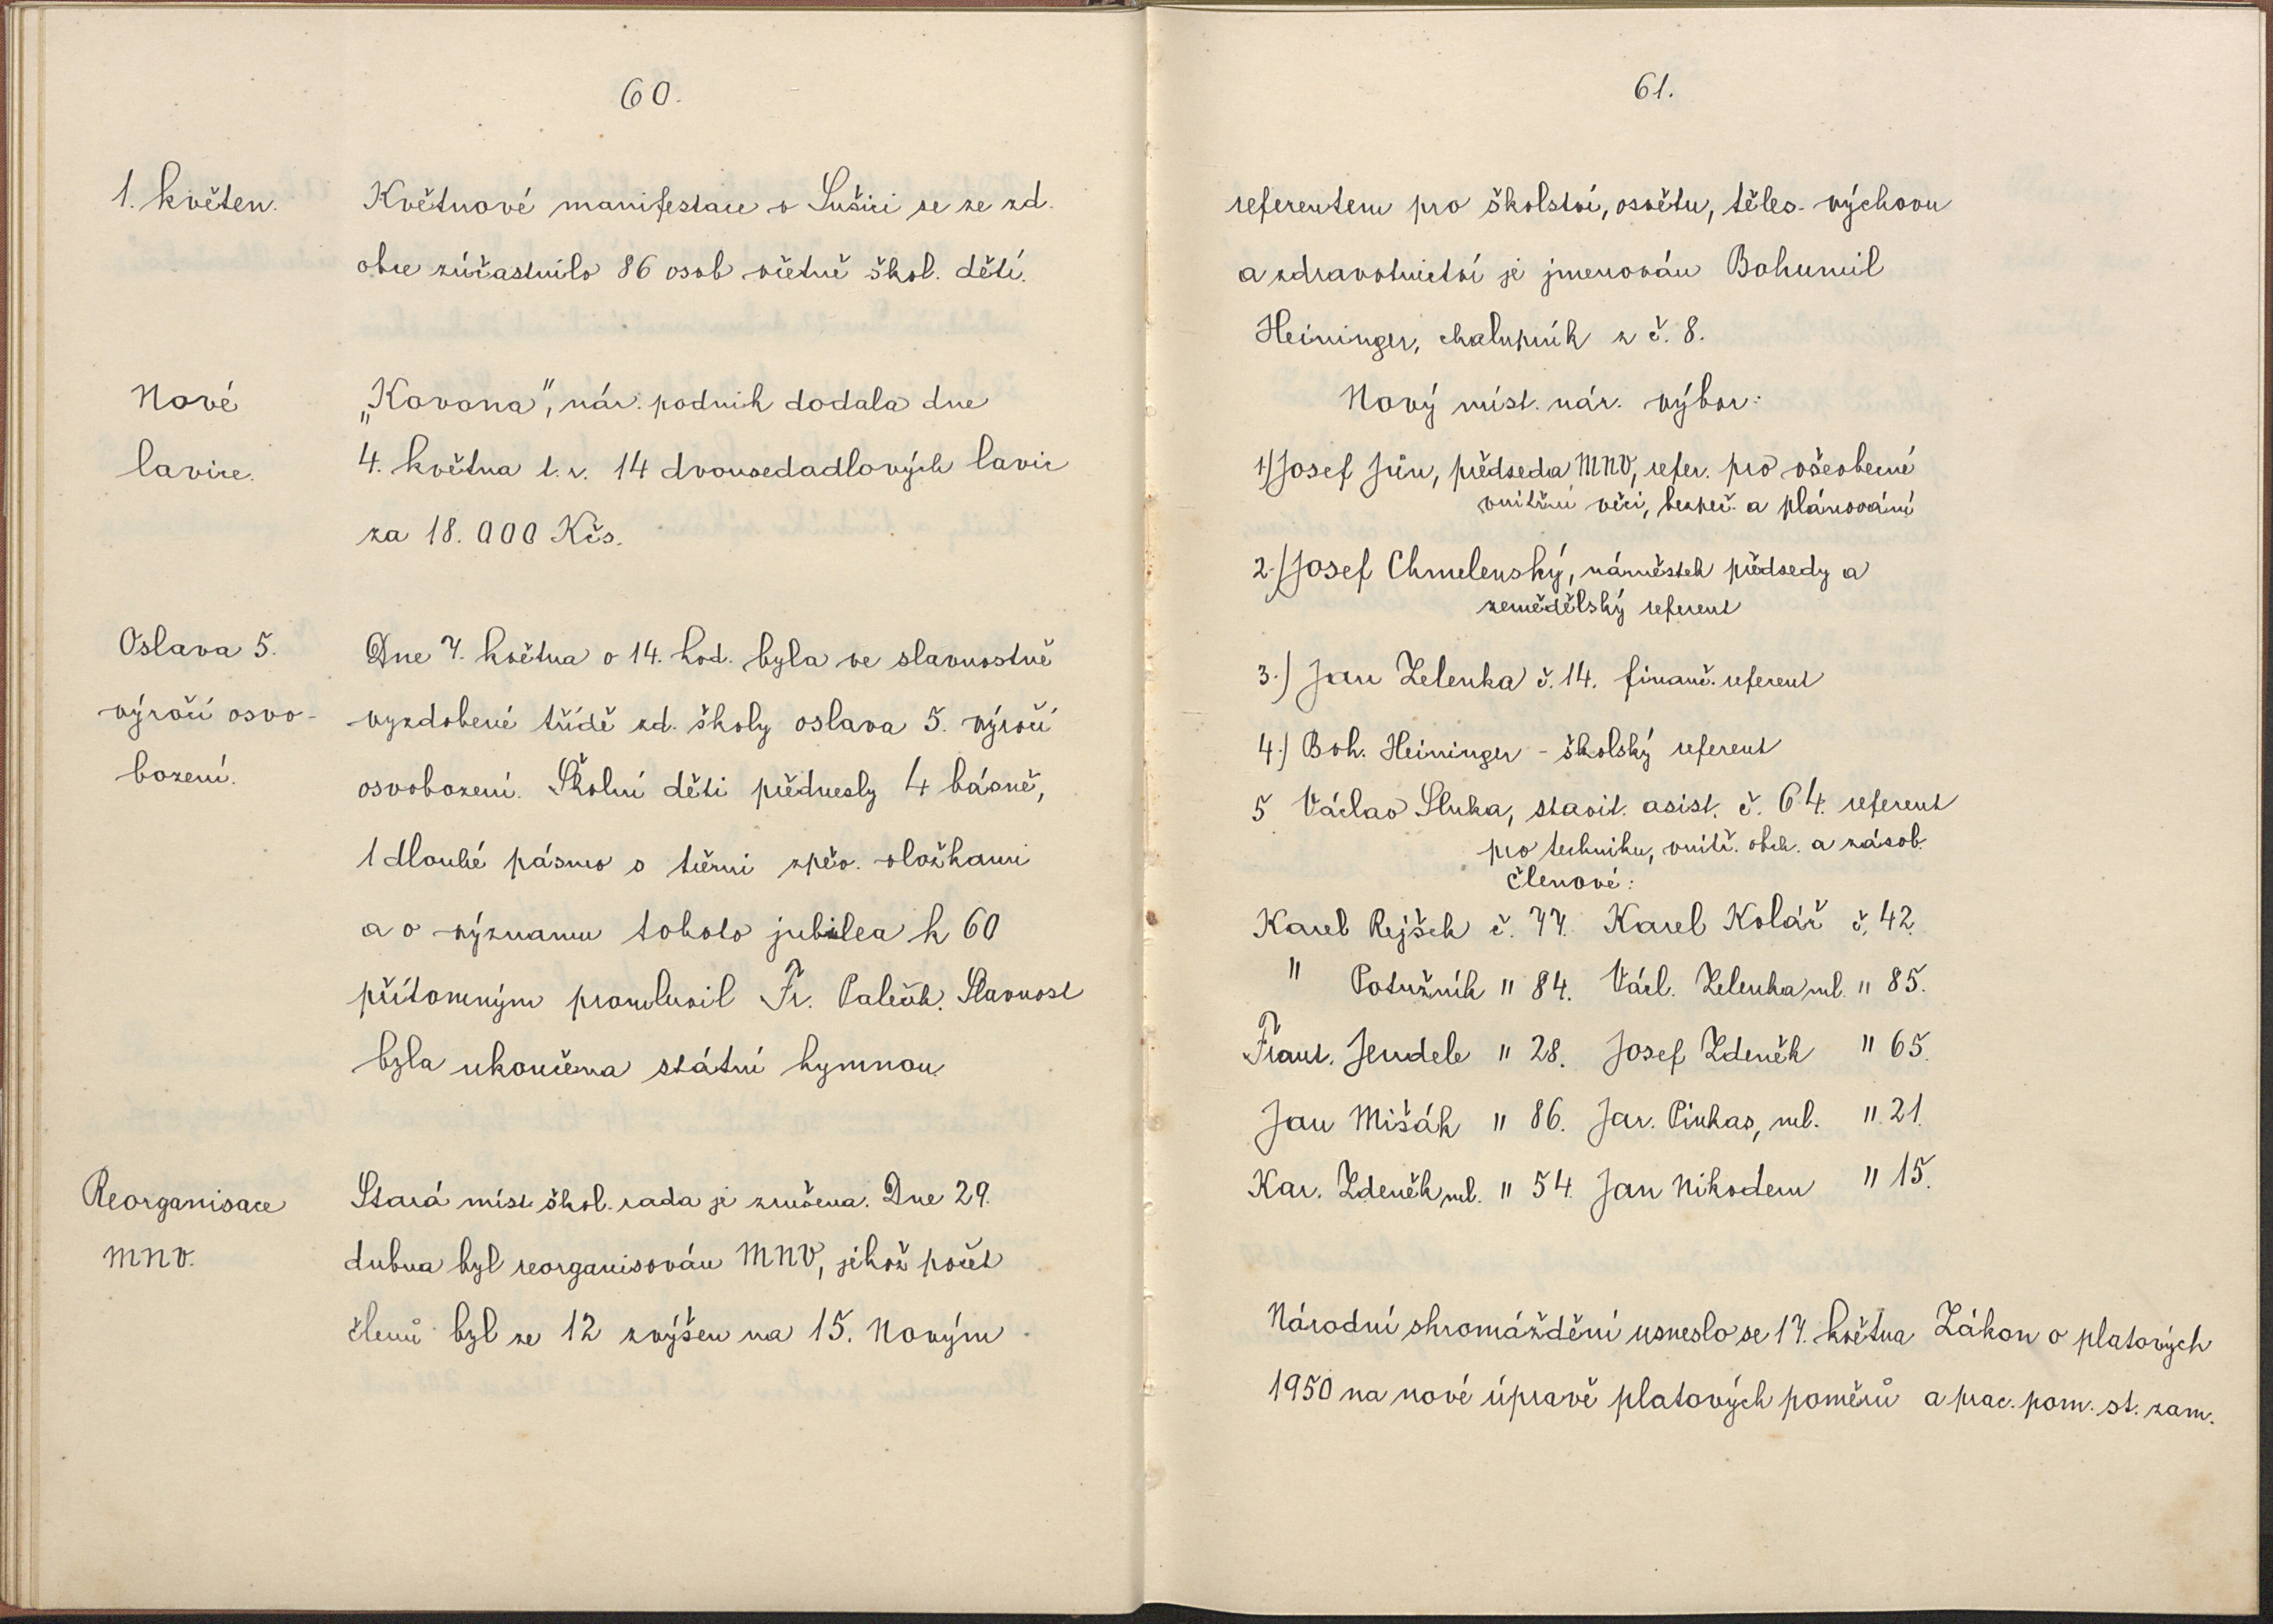 60.
1. květen.
Květnové manifestace v Sušici se ze zd.
obce zúčastnilo 86 osob včetně škol. dětí.
Nové
lavice.
„Kovona", nár. podnik dodala dne
4. května t. r. 14 dvousedadlových lavic
za 18.000 Kčs.
Oslava 5.
výročí osvo-
bození.
Dne 7. května o 14. hod. byla ve slavnostně
vyzdobené třídě zd. školy oslava 5. výročí
osvobození. Školní děti přednesly 4 básně,
1 dlouhé pásmo s třemi zpěv. vložkami
a o významu tohoto jubilea k 60
přítomným promluvil Fr. Paleček. Slavnost
byla ukončena státní hymnou.
Reorganisace
MNV.
Stará míst. škol. rada je zrušena. Dne 29.
dubna byl reorganisován MNV, jehož počet
členů byl ze 12 zvýšen na 15. Novým
61.
referentem pro školství, osvětu, těles. výchovu
a zdravotnictví je jmenován Bohumil
Heininger, chalupník z č. 8.
Nový míst. nár. výbor:
1.) Josef Jůn, předseda MNV, refer. pro všeobecné
vnitřní věci, bezpeč. a plánování
2.) Josef Chmelenský, náměstek předsedy a
zemědělský referent
3.) Jan Zelenka č. 14. finanč. referent
4.) Boh. Heininger - školský referent
5 Václav Sluka, stavit. asist. č. 64. referent
pro techniku, vnitř. obch. a zásob.
členové:
Karel Rejšek č. 77. Karel Kolář č. 42.
" Potužník " 84. Václ. Zelenka ml. " 85.
Frant. Jendele " 28. Josef Zdeněk " 65.
Jan Mišák " 86. Jar. Pinkas, ml. " 21.
Kar. Zdeněk ml. " 54. Jan Nikodem " 15.
Národní shromáždění usneslo se 17. května Zákon o platových
1950 na nové úpravě platových poměrů a prac. pom. st. zam.